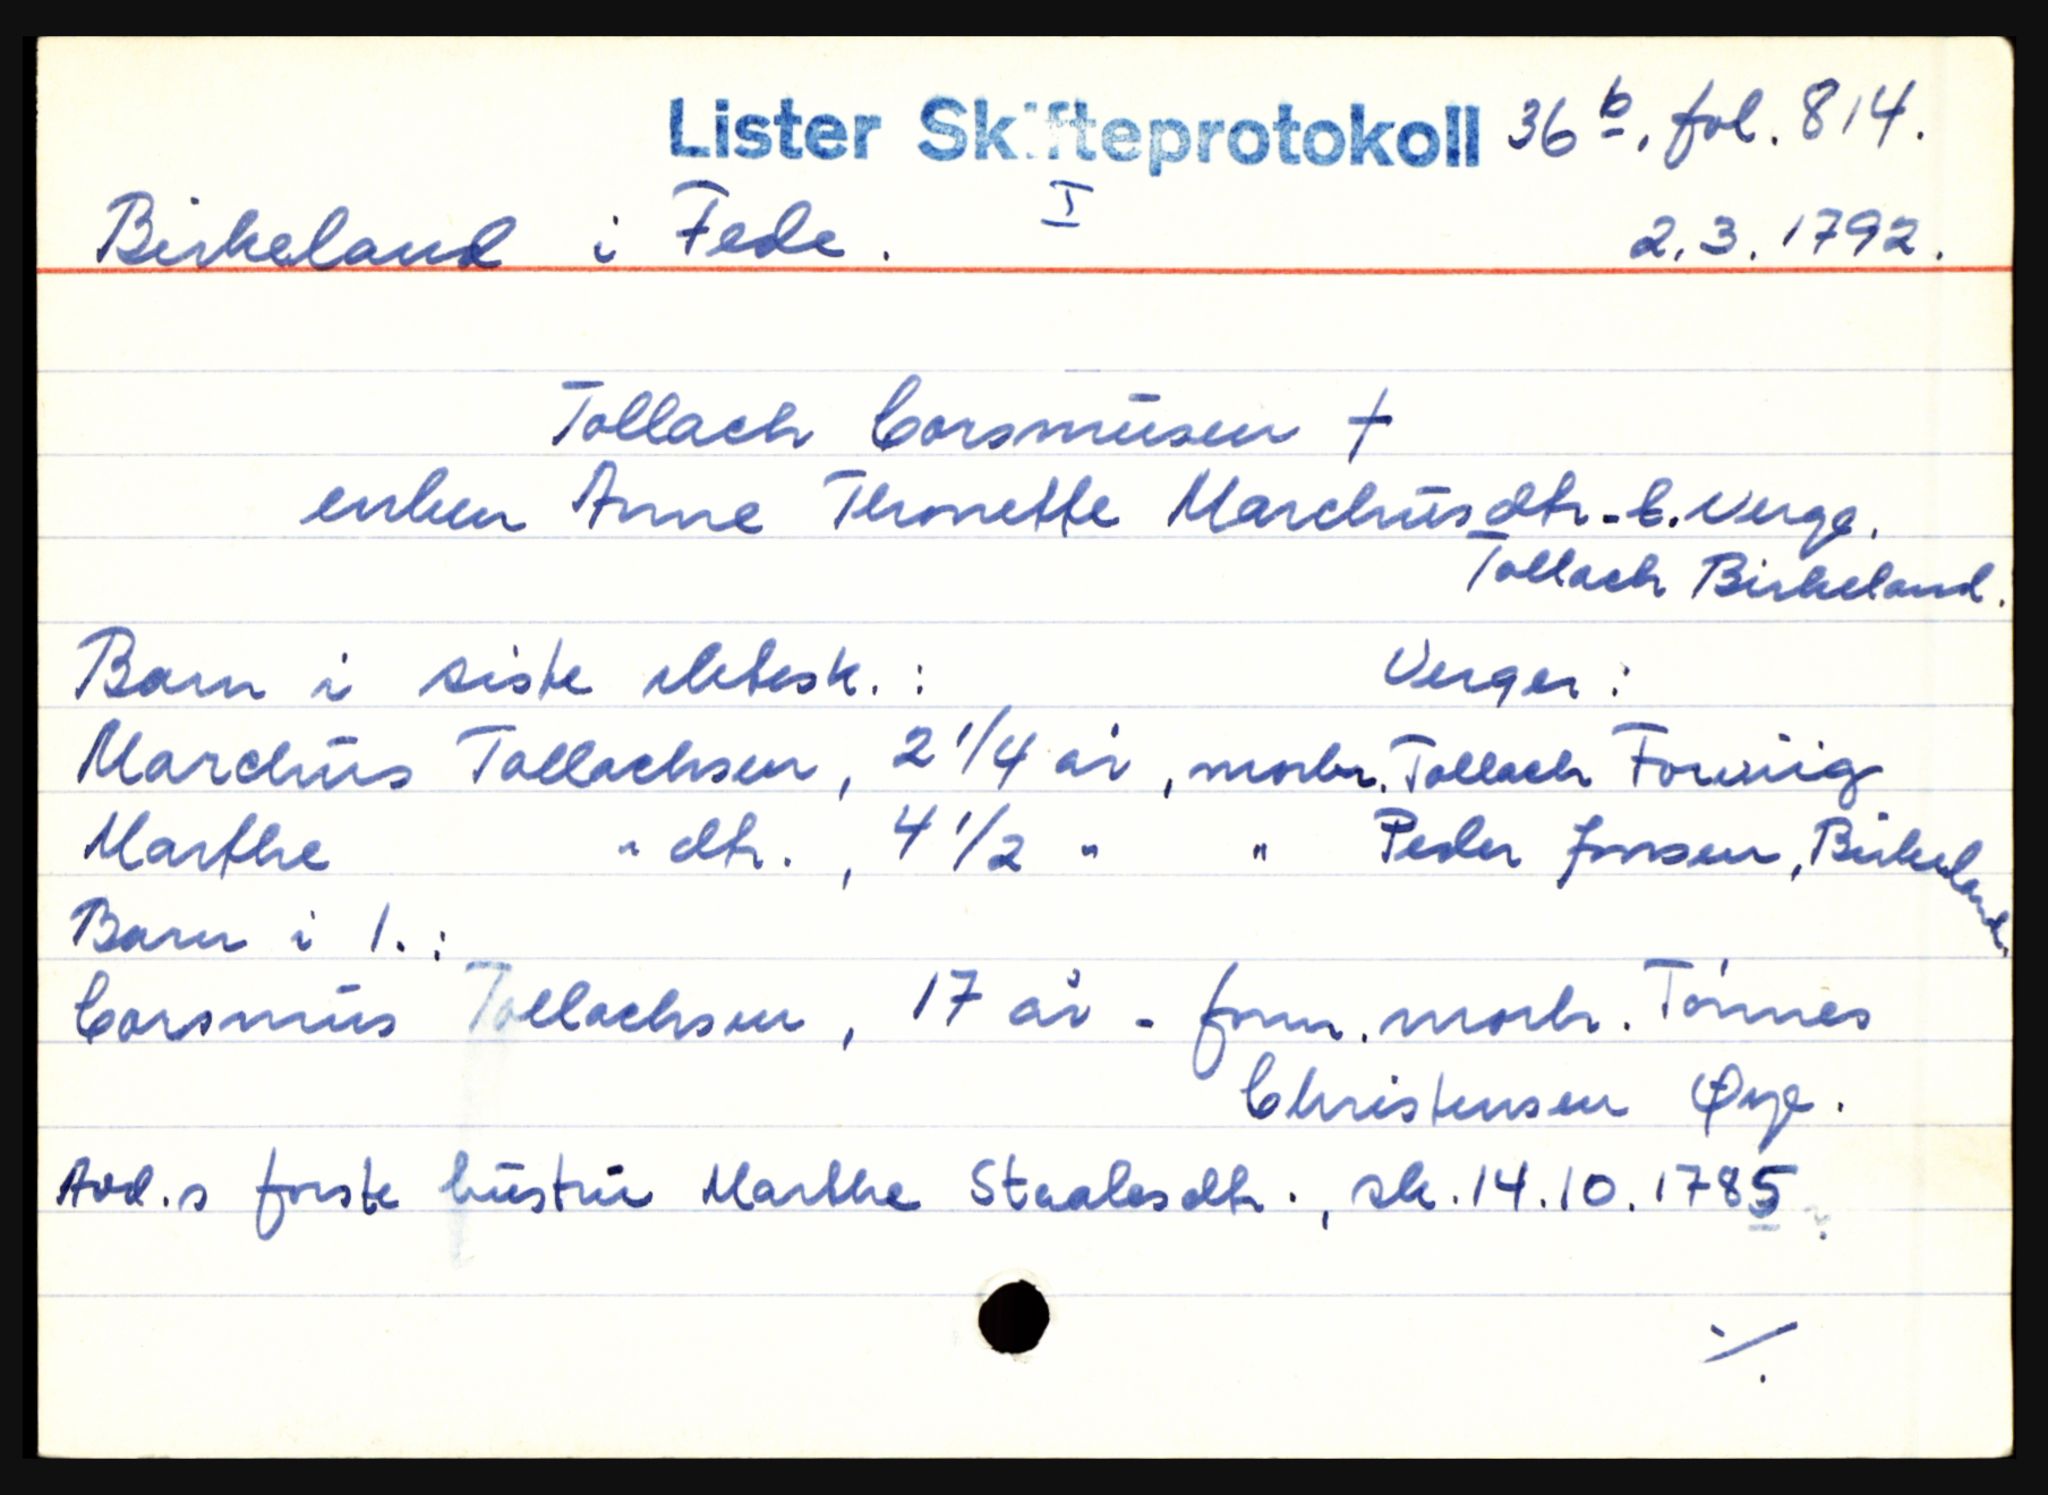 Lister Skifteprotokoll 36 b, fol. 814.
I
Birkeland i Fede. 2.3.1792.
Tollach Corsmusen †
enken Anne Thonette Marchusdtr. - l. verge,
Tollach Birkeland.
Barn i siste ektesk.: Verger:
Marchus Tollachsen, 2 1/4 år, morbr. Tollach
Marthe " dtr., 4 1/2 " " Peder Jonsen, Birkeland.
Barn i 1.:
Corsmus Tollachsen, 17 år - form. morbr. Tønnes
Christensen Øye.
Avd.s første hustru Marthe Staalesdtr., sk. 14.10.1785
./.